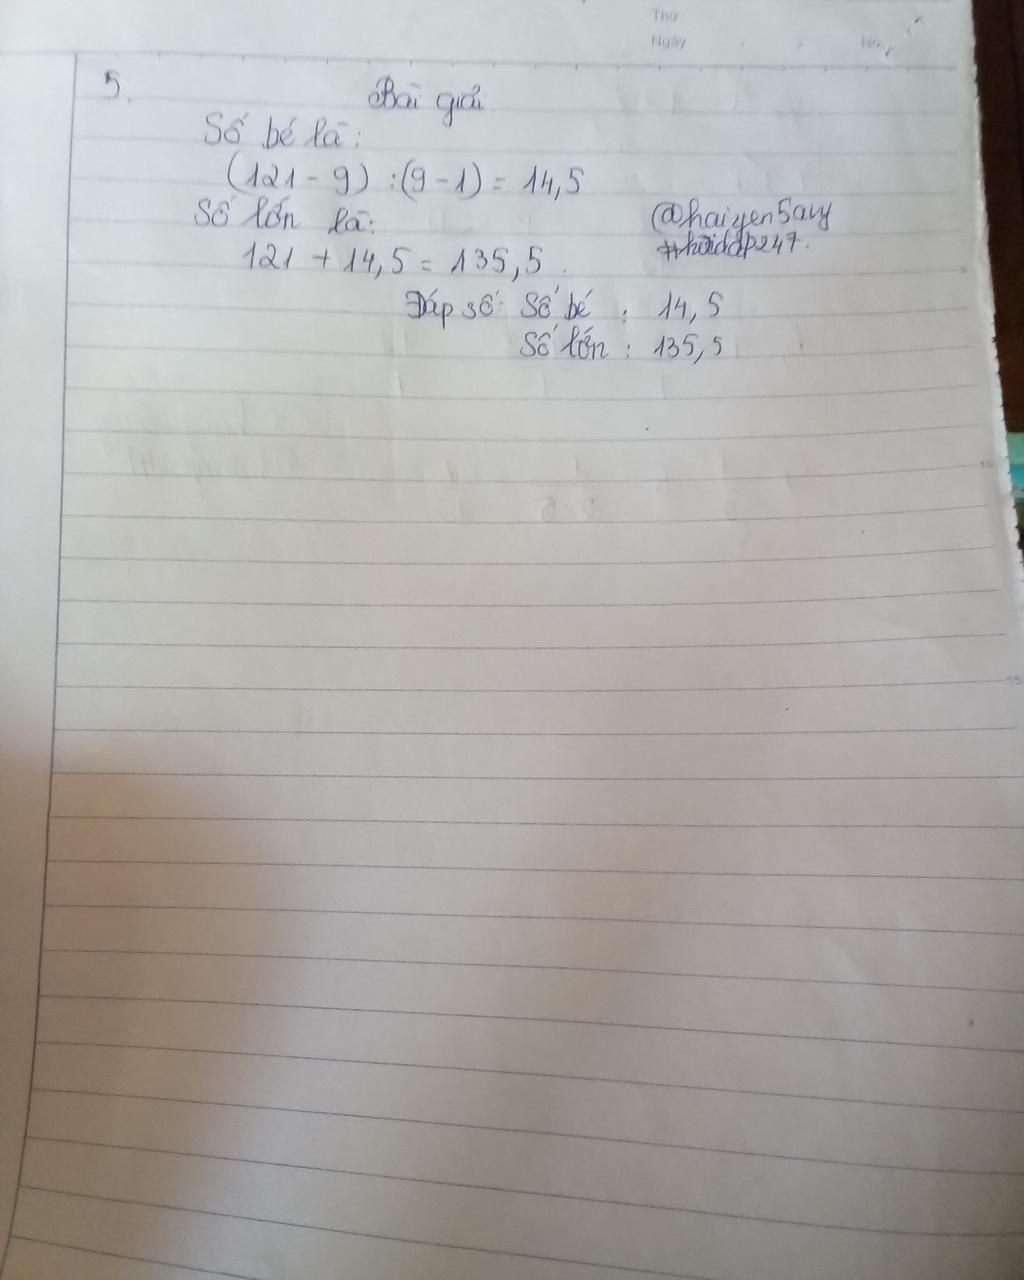 Thứ
Ngày No.
5.
Bài giải
Số bé là:
(121 - 9) : (9 - 1) = 14,5
Số lớn là:
@haiyen5avy
#hoidap247.
121 + 14,5 = 135,5.
Đáp số: Số bé : 14,5
Số lớn : 135,5
5
10
15